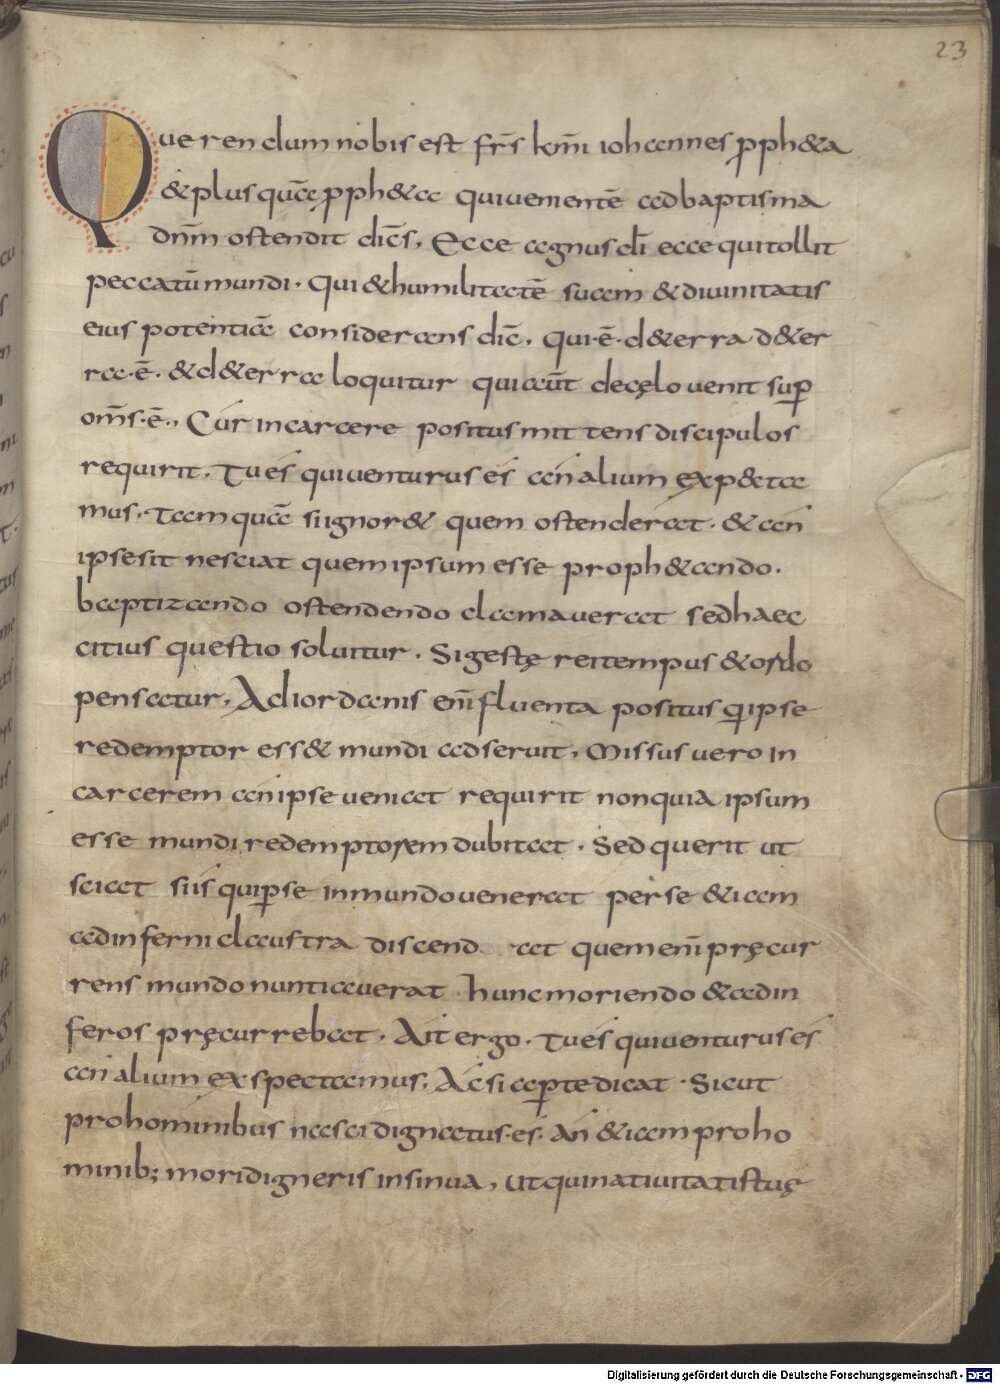 23
Querendum nobis est fr̄s km̄i iohannes p̄ph&a
& plus quā p̄ph&a qui uenientē ad baptisma
dn̄m ostendit dic̄s. Ecce agnus dī ecce qui tollit
peccatū mundi. Qui & humilitatē suam & diuinitatis
eius potentiā considerans dic̄. qui ē. d& erra d& er
ra ē. & d& erra loquitur qui aūt de cęlo uenit sup̄
om̄s ē., Cur in carcere positus mittens discipulos
requirit. Tu és qui uenturus és án alium exp&ta
mus. Tam quā si ignor& quem ostenderat. & án
ipse sit nesciat quem ipsum esse proph&ando.
baptizando ostendendo clamauerat sed haec
citius questio soluitur. Si gestę rei tempus & ordo
pensatur. Ad iordanis em̄ fluenta positus q̄ ipse
redemptor ess& mundi adseruit. Missus uero in
carcerem án ipse ueniat requirit non quia ipsum
esse mundi redemptorem dubitat. Sed querit ut
sciat si is qui p̄ se in mundo uenerat per se &iam
ad inferni claustra discend at quem em̄ pręcur
rens mundo nuntiauerat hunc moriendo & ad in
feros pręcurrebat. Ait ergo. Tu és qui uenturus és
án alium exspectamus. Ac si ap̄te dicat. Sicut
pro hominibus nasci dignatus és. án &iam pro ho
minib; mori digneris insinua, ut qui natiuitatis tuę
Digitalisierung gefördert durch die Deutsche Forschungsgemeinschaft - DFG